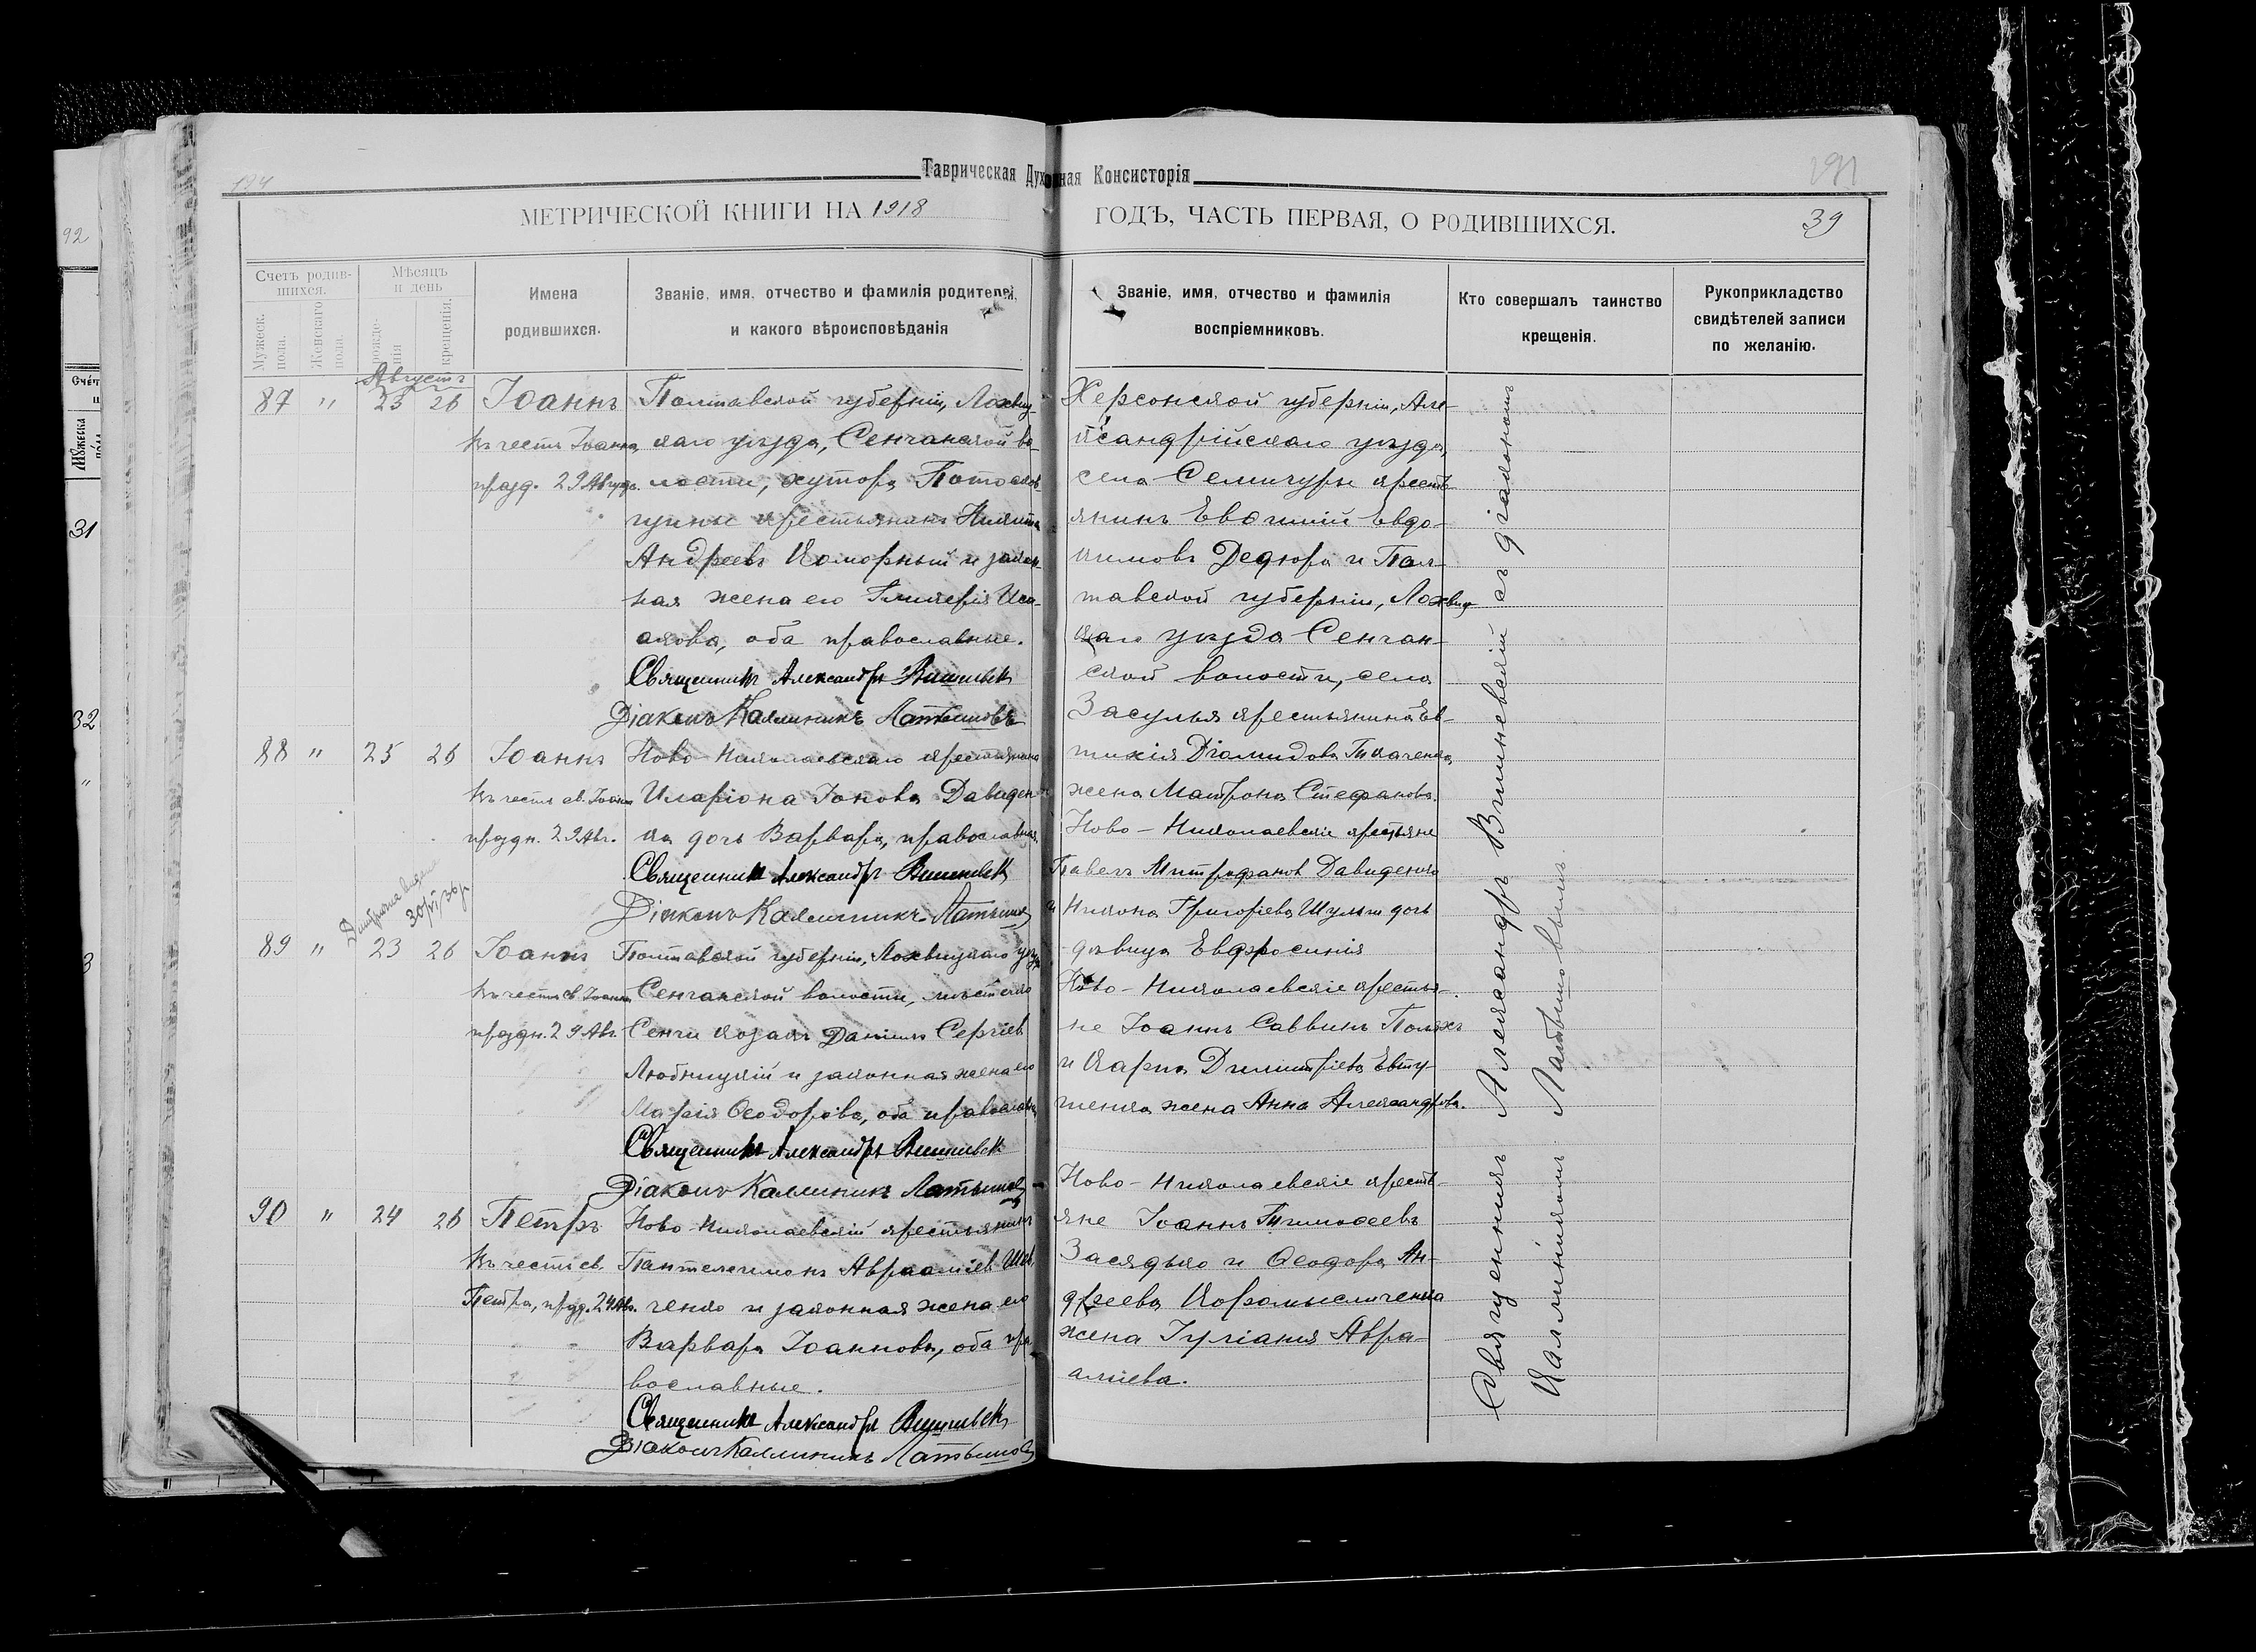 Таврическая Духовная Консисторія
194
МЕТРИЧЕСКОЙ КНИГИ НА 1918
ГОДЪ, ЧАСТЬ ПЕРВАЯ, О РОДИВШИХСЯ.
39
92
Счетъ родив-
шихся.
Мужеск. пола.
Женскаго пола.
Мѣсяцъ
и день
рожде-
нія
крещенія.
Имена
родившихся.
Званіе, имя, отчество и фамилія родителей,
и какого вѣроисповѣданія
Званіе, имя, отчество и фамилія
воспріемниковъ.
Кто совершалъ таинство
крещенія.
Рукоприкладство
свидѣтелей записи
по желанію.
31
32
Августъ
87 " 23 26 Іоаннъ
Въ честь Іоанна,
празд. 29 Август.
Полтавской губерніи, Лохвиц-
каго уѣзда, Сенчанской во-
лости, хутора
крестьянинъ Никита
Андреевъ Коморный и закон-
ная жена его Гликерія Иса-
акова, оба православные.
Священникъ Александръ Вишневскій
Діаконъ Каллиникъ Латышовъ
Херсонской губерніи, Але-
ксандрійскаго уѣзда,
села Семигоры кресть-
янинъ Евѳимій Евдо-
кимовъ Дедюра и Пол-
тавской губерніи, Лохвиц-
каго уѣзда Сенчан-
ской волости, села
Засулья крестьянина Ев-
тихія Діомидова Ткаченка,
жена Матрона Стефанова.
88 " 25 26 Іоаннъ
Въ честь св. Іоанна
праздн. 29 Авг.
Ново-Николаевскаго крестьянина
Иларіона Іонова Давиден-
ка дочь Варвара, православная
Священникъ Александръ Вишневскій
Діаконъ Каллиникъ Латышовъ
Ново-Николаевскіе крестьяне
Павелъ Митрофановъ Давиденко
и Никона Григорьева Шульги дочь
дѣвица Евфросинія
89 " 23 26 Іоаннъ
Въ честь св. Іоанна
праздн. 29 Авг.
Полтавской губерніи, Лохвицкаго уѣзда
Сенчанской волости, мѣстечка
Сенчи козакъ Даніилъ Сергіевъ
Любицкій и законная жена его
Марія Ѳеодорова, оба православные
Священникъ Александръ Вишневскій
Діаконъ Каллиникъ Латышовъ
Ново-Николаевскіе крестья-
не Іоаннъ Саввинъ Поляхъ
и Карпа Димитріева Евту-
шенка жена Анна Александрова.
90 " 24 26 Петръ
Въ честь св.
Петра, празд. 24 Авг.
Ново-Николаевскій крестьянинъ
Пантелеимонъ Авраамiевъ Шев-
ченко и законная жена его
Варвара Іоаннова, оба пра-
вославные.
Священникъ Александръ Вишневскій
Діаконъ Каллиникъ Латышовъ
Ново-Николаевскіе кресть-
яне Іоаннъ Тимоѳеевъ
Засядько и Ѳеодора Ан-
дреева Коромысличенка
жена Іуліанія Авра-
аміева.
Священникъ Александръ Вишневскій съ діакономъ
Каллиникомъ Латышовымъ.